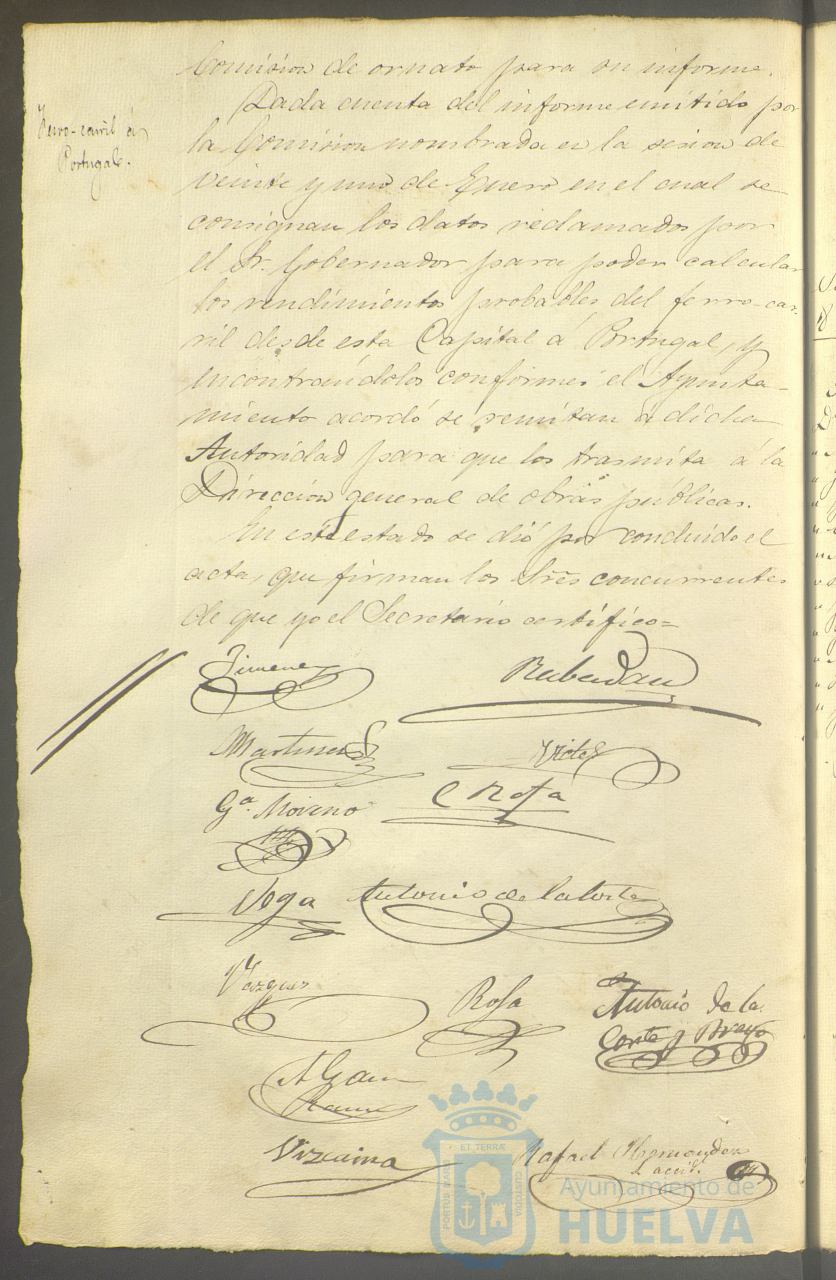 Comision de ornato para su informe.
Ferro-carril á
Portugal.
Dada cuenta del informe emitido por
la Comision nombrada en la sesion de
veinte y uno de Enero en el cual se
consignan los datos reclamados por
el Sr. Gobernador para poder calcular
los rendimientos probables del ferro-car-
ril desde esta Capital á Portugal, y
encontrándolos conformes el Ayunta-
miento acordó se remitan á dicha
Autoridad para que los trasmita á la
Dirección general de obras públicas.
En este estado se dió por concluido el
acta, que firman los Sres concurrentes
de que yo el Secretario certifico=
Jimenez
Martinez
Gª. Moreno
C Rofa
Vega Antonio de la Corte
Vazquez
Rofa
Antonio de la
Corte y Bravo
Vizcaina
Rafael Hernandez
PORTUS MARIS ET TERRÆ CUSTODIA
Ayuntamiento de
HUELVA